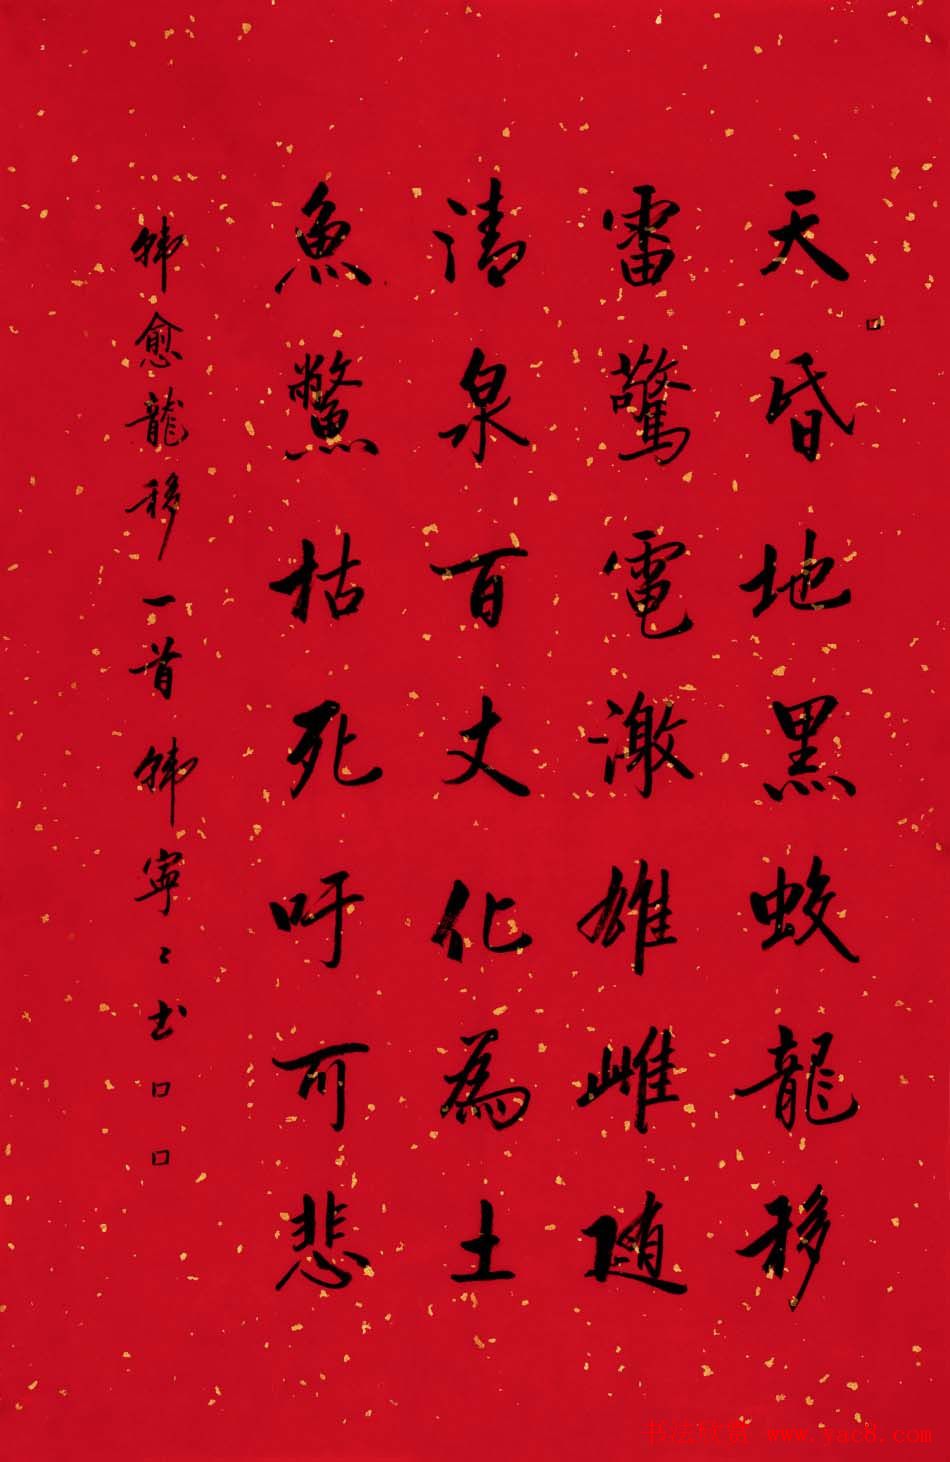 天昏地黑蛟龍移
雷驚電激雄雌随
清泉百丈化為土
魚鱉枯死吁可悲
韓愈龍移一首韓寧〻书
书法欣赏 www.yac8.com